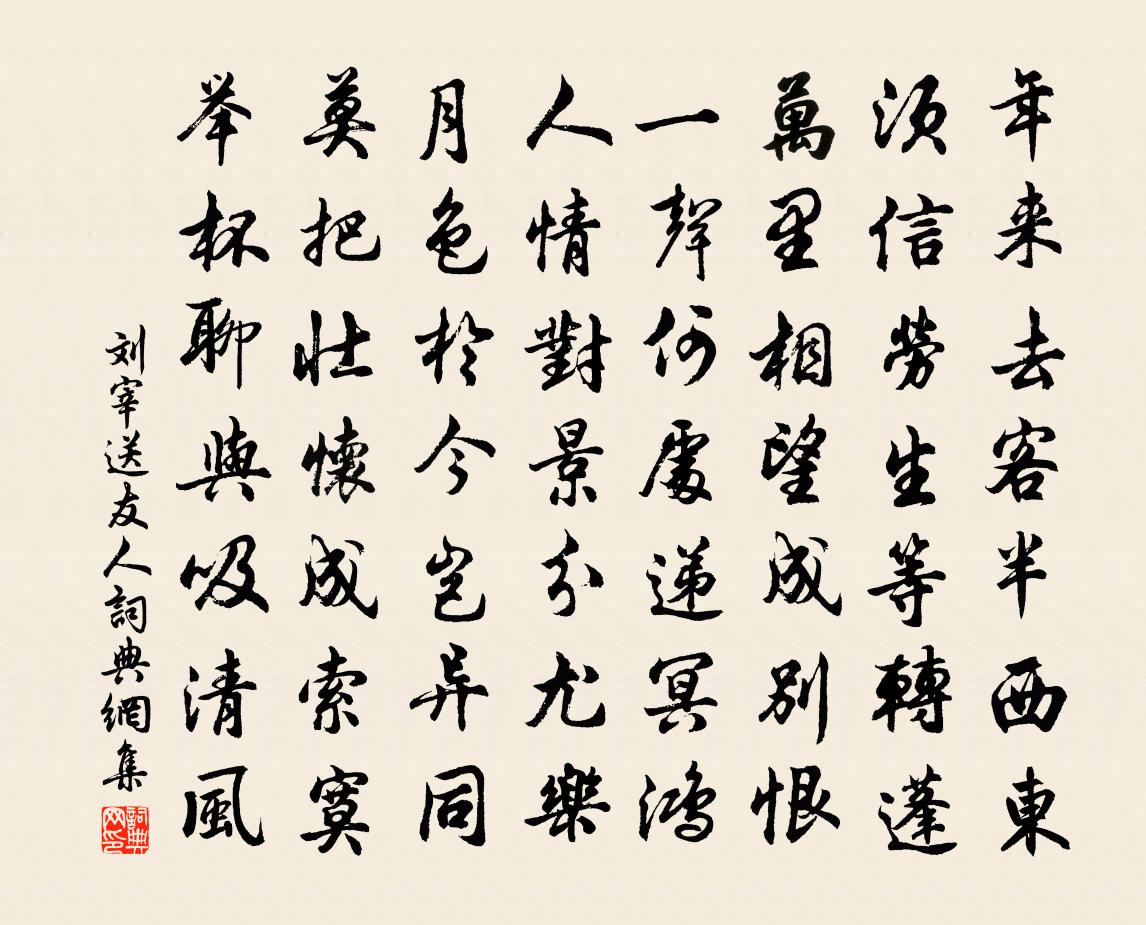 年来去客半西东
须信劳生等轉蓬
萬里相望成别恨
一聲何處递冥鸿
人情對景分尤樂
月色於今岂异同
莫把壮懷成索寞
举杯聊與吸清風
刘宰送友人詞典網集
詞典網印